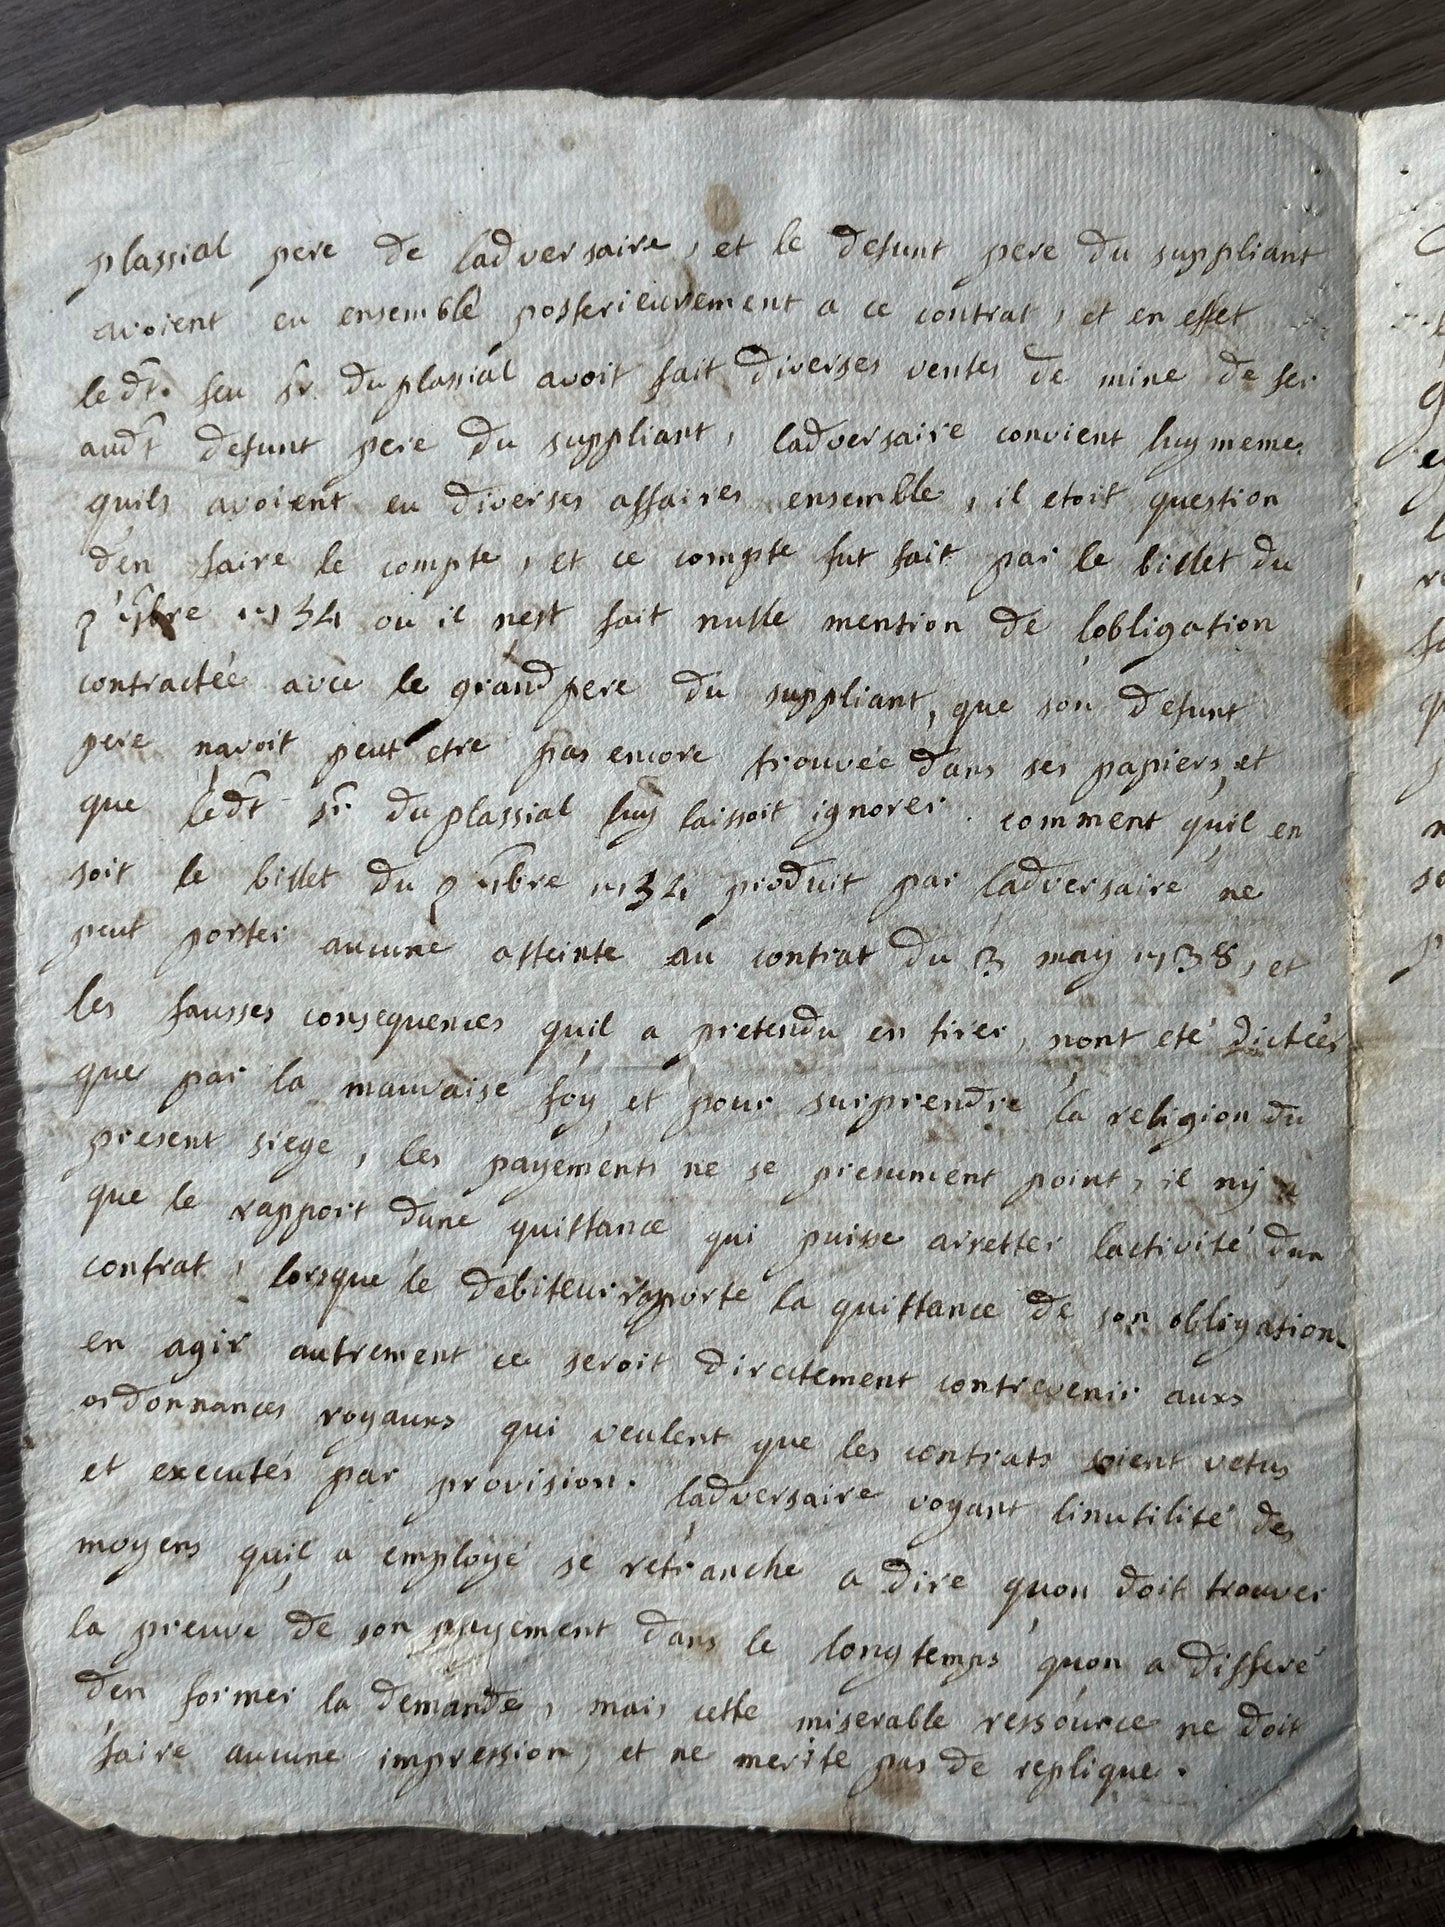 plassial pere de ladversaire, et le defunt pere du suppliant
avoient eu ensemble posterieurement a ce contrat, et en effet
ledt. feu sr. duplassial avoit fait diverses ventes de mine de fer
audt defunt pere du suppliant, ladversaire convient luy meme
quils avoient eu diverses affaires ensemble, il etoit question
den faire le compte, et ce compte fut fait par le billet du
1734 ou il nest fait nulle mention de lobligation
contractée avec le grand pere du suppliant, que son defunt
pere navoit peut etre pas encore trouvée dans ses papiers, et
que ledt sr. duplassial luy laissoit ignorer. comment quil en
soit le billet du 1734 produit par ladversaire ne
peut porter aucune atteinte au contrat du 3 may 1738, et
les fausses consequences quil a pretendu en tirer, nont eté dictées
que par la mauvaise foy et pour surprendre la religion du
present siege, les payements ne se presument point, il ny a
que le rapport dune quittance qui puisse arretter lactivité dun
contrat, lorsque le debiteur rapporte la quittance de son obligation
en agir autrement ce seroit directement contrevenir auxs
ordonnances royauxs qui veulent que les contrats soient vetus
et executés par provision. ladversaire voyant linutilité des
moyens quil a employé se retranche a dire quon doit trouver
la preuve de son payement dans le longtemps quon a differé
den former la demande, mais cette miserable ressource ne doit
faire aucune impression, et ne merite pas de replique.